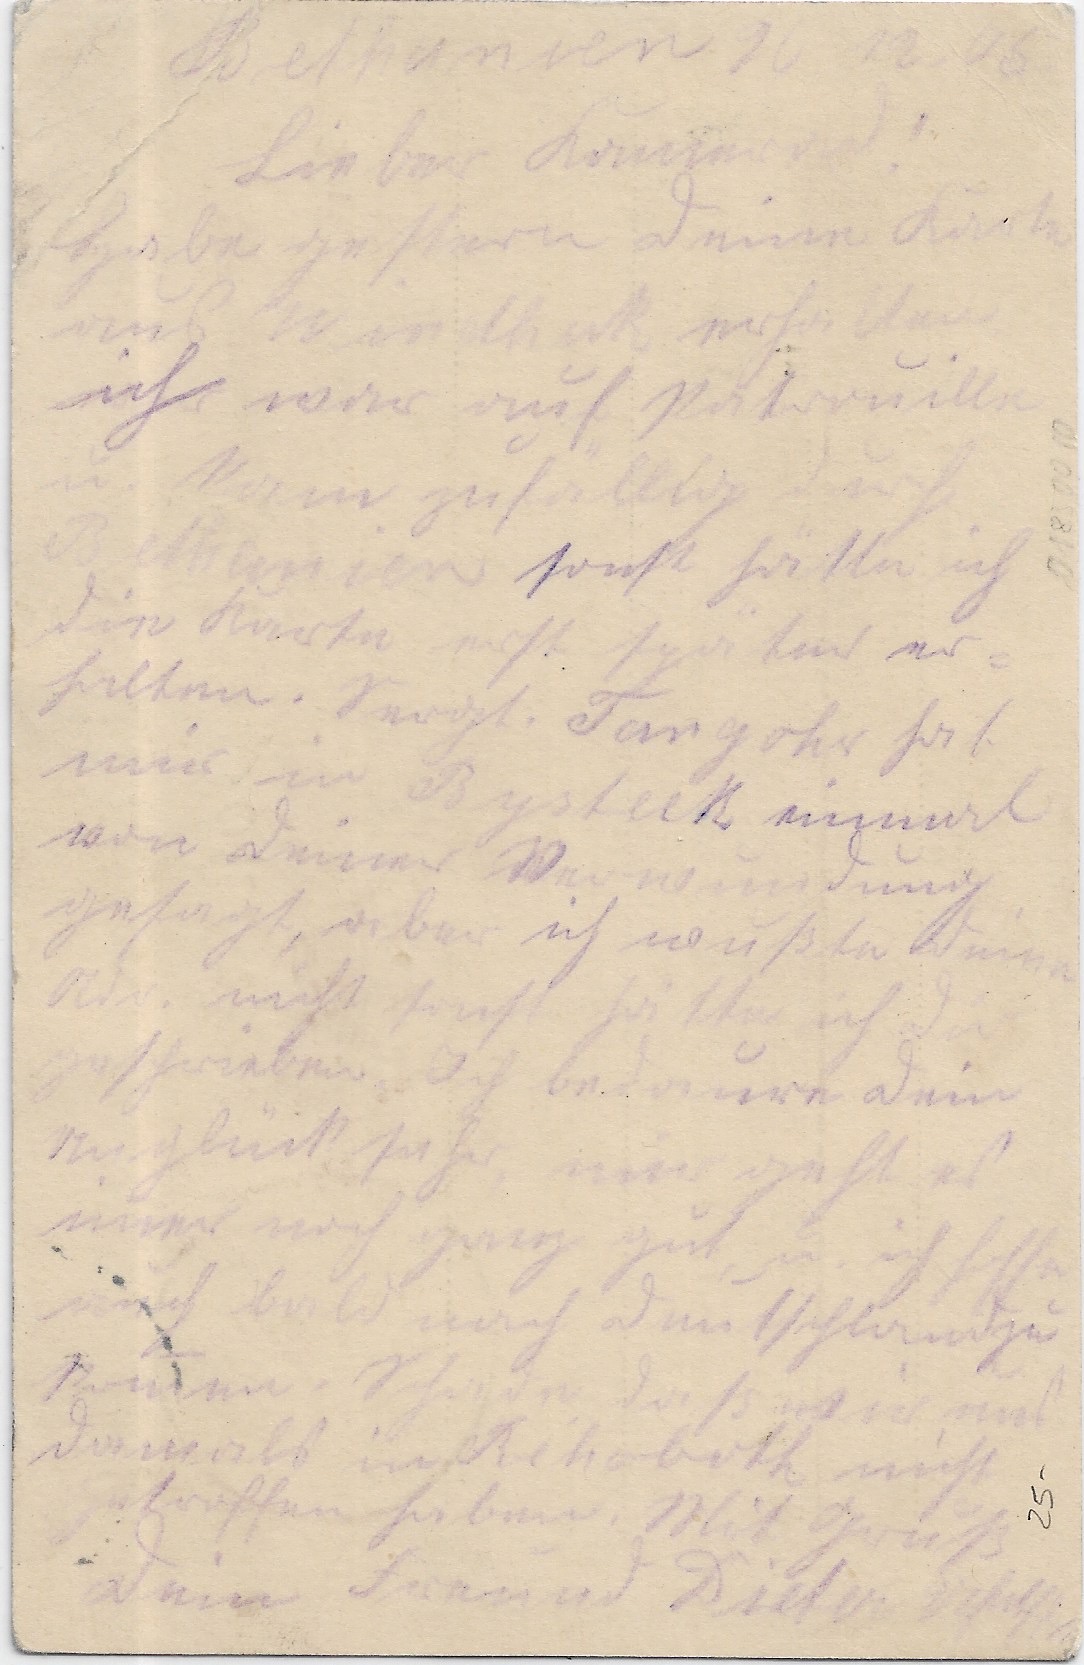 Bethanien 12 06
Lieber Kamerad!
Habe gestern Deine Karte
aus Windhuk erhalten
ich war auf Patrouille
u. kam zufällig durch
Bethanien sonst hätte ich
die Karte erst später er=
halten. Sergt. Tangohr hat
mir in Bysteck einmal
von Deiner Verwundung
gesagt, aber ich wußte Deine
Adr. nicht sonst hätte ich Dir
geschrieben. Ich bedaure Dein
Unglück sehr, mir geht es
im̅er noch ganz gut, u. ich hoffe
auch bald nach Deutschland zu
kom̅en. Schade daß wir uns
damals in Rehoboth nicht
getroffen haben. Mit Gruß
Dein Freund Dieter
25-